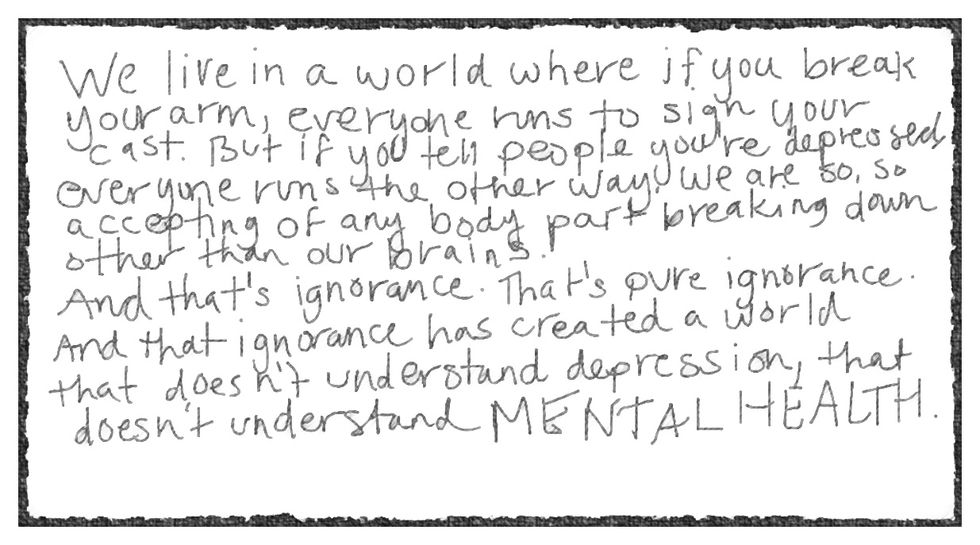 We live in a world where if you break
your arm, everyone runs to sign your
cast. But if you tell people you're depressed
everyone runs the other way. We are so, so
accepting of any body part breaking down
other than our brains.
And that's ignorance. That's pure ignorance.
And that ignorance has created a world
that doesn't understand depression, that
doesn't understand MENTAL HEALTH.